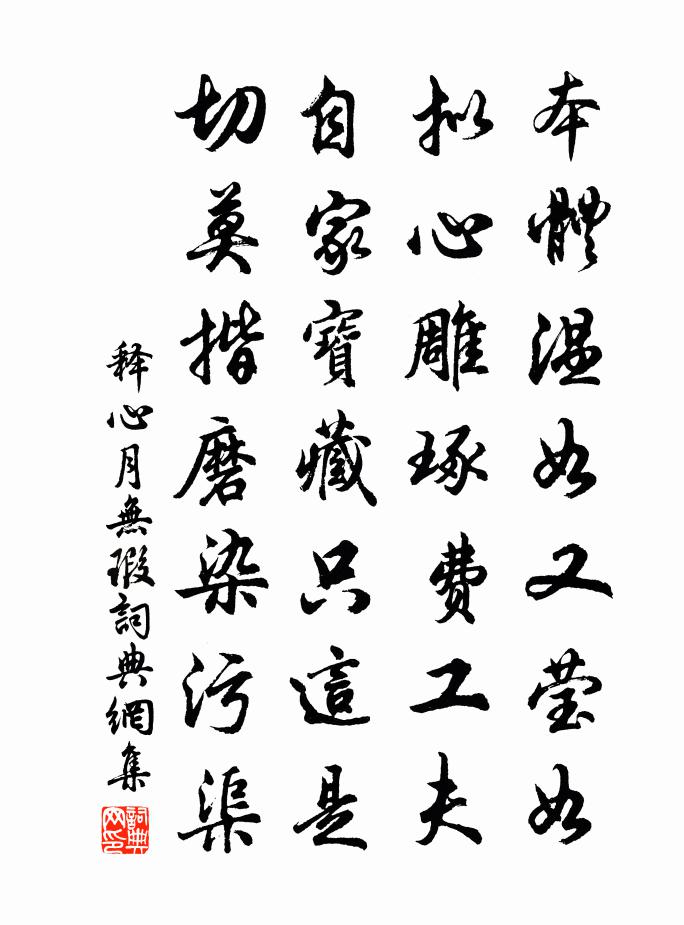 本體温如又莹如
拟心雕琢费工夫
自家寶藏只這是
切莫揩磨染污渠
释心月無瑕詞典網集
詞典网印